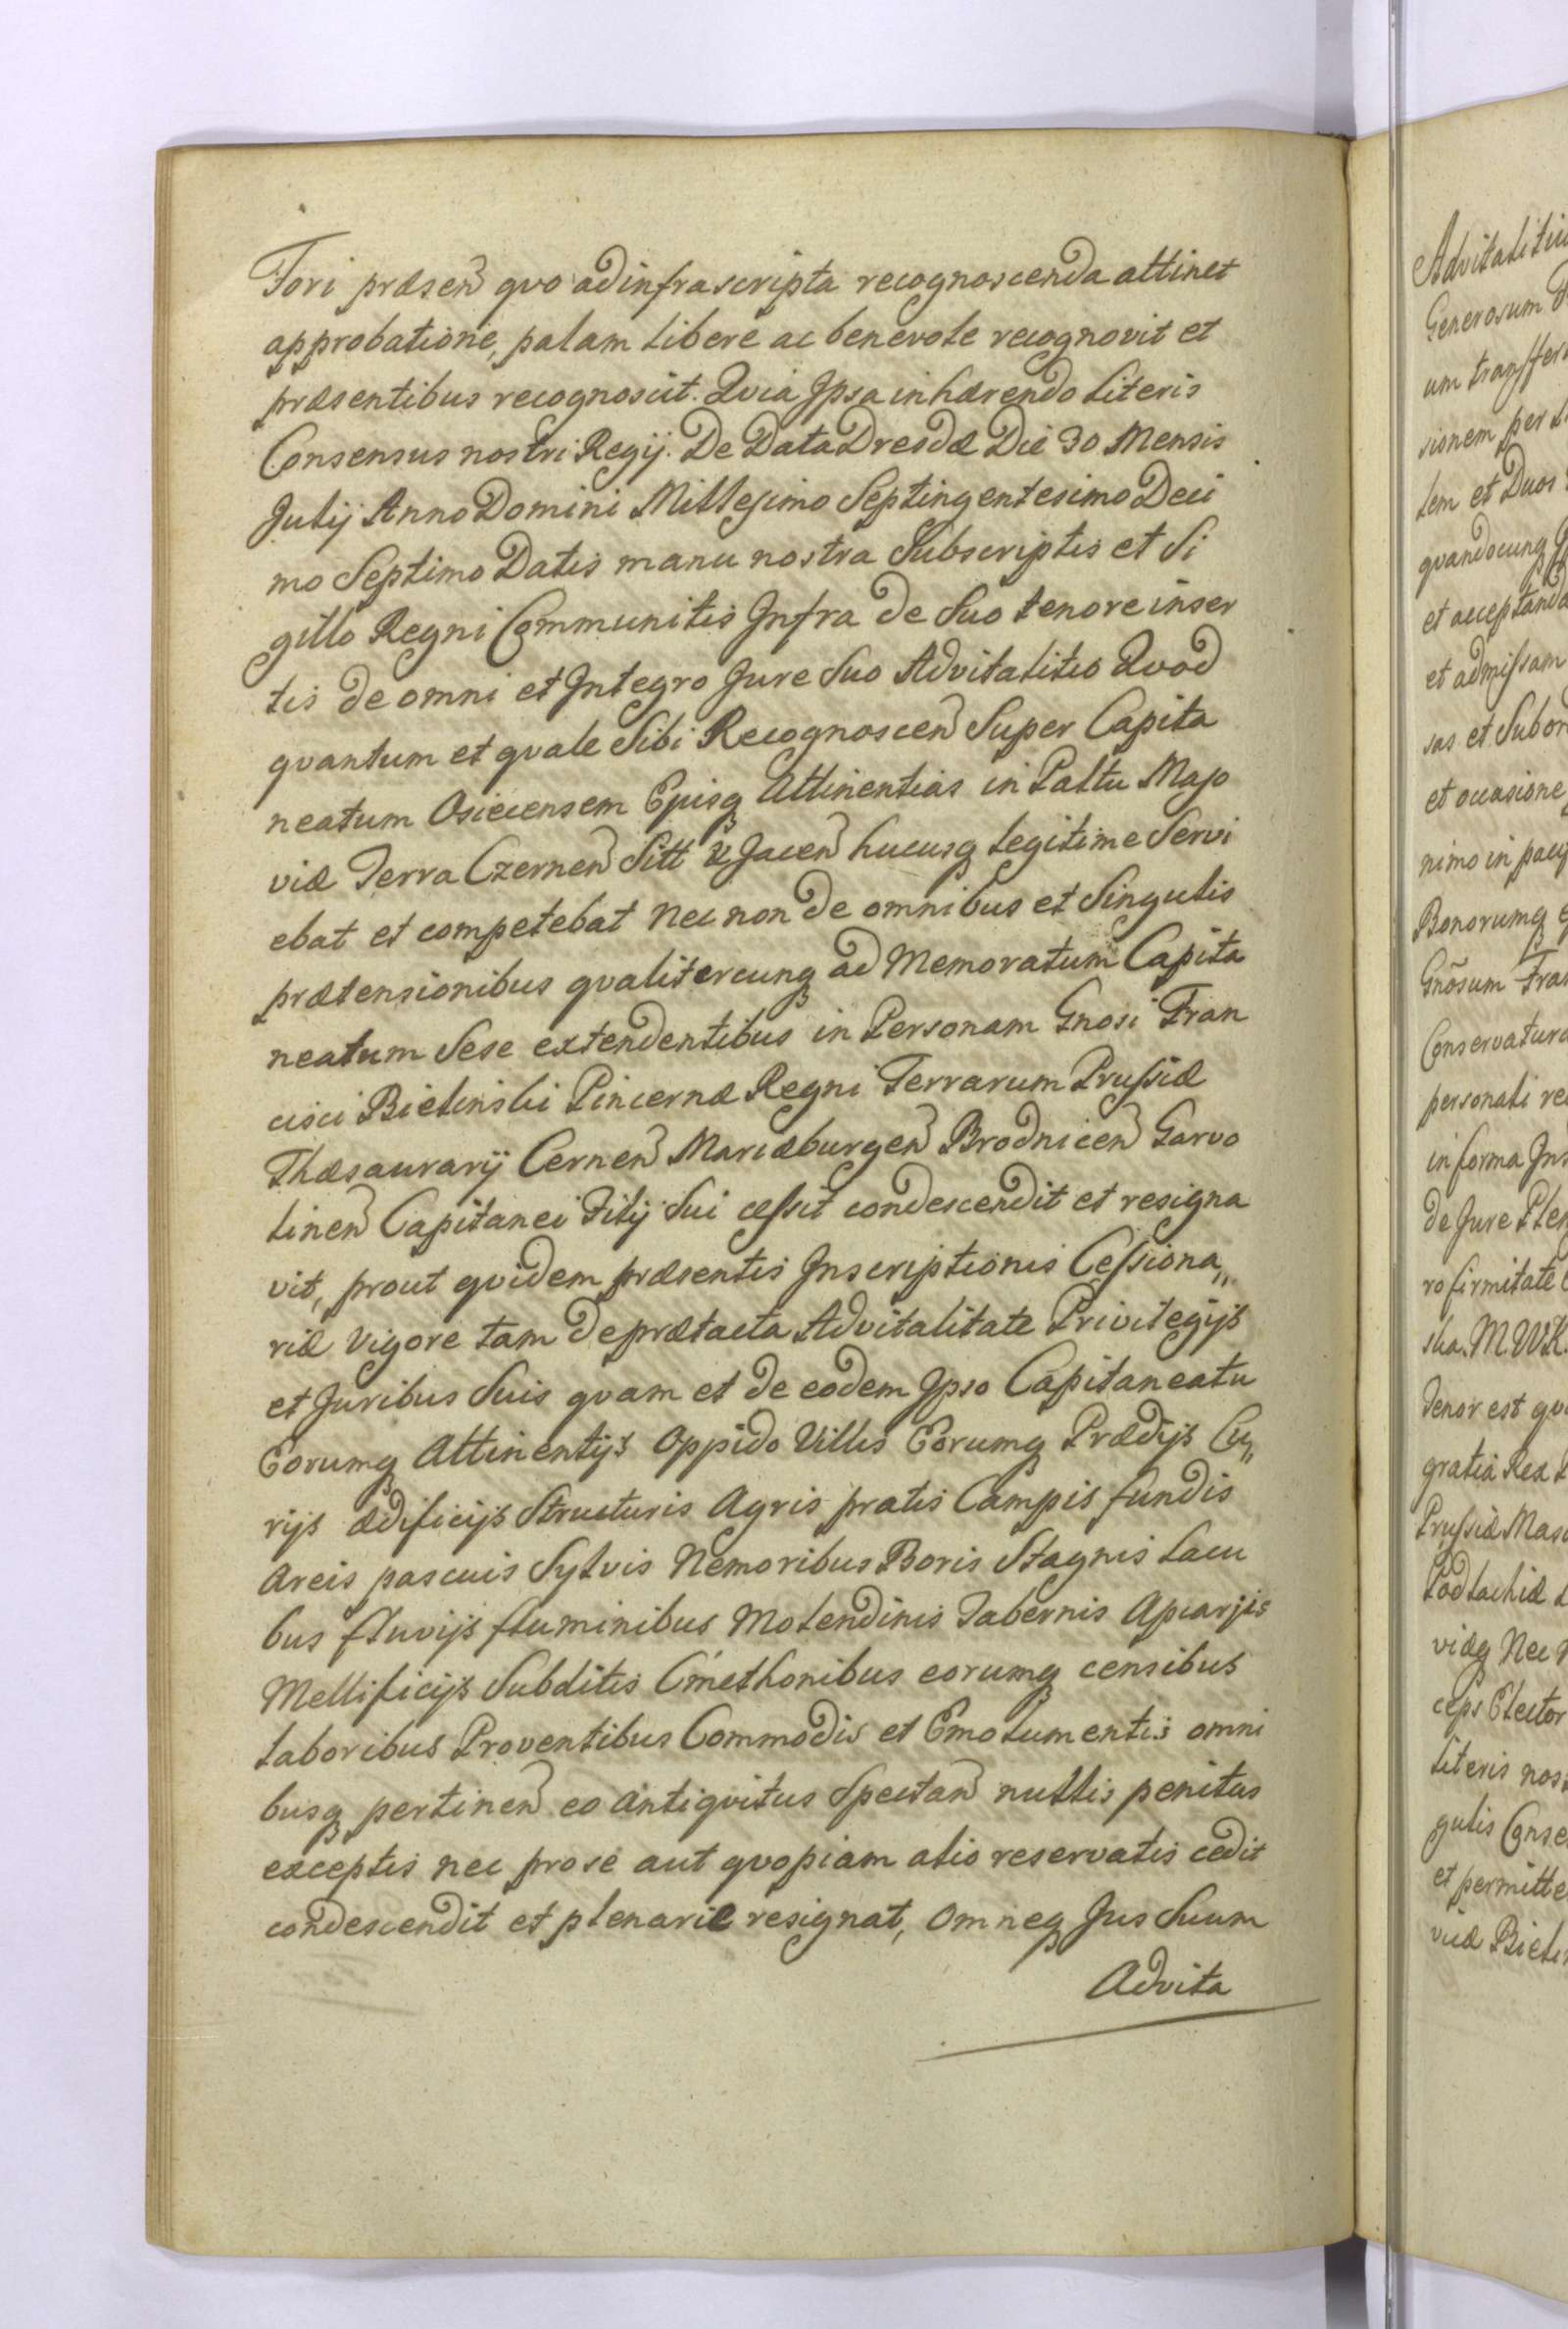 Fori præsen quo ad infrascripta recognoscenda attinet
approbatione, palam libere ac benevole recognovit et
præsentibus recognoscit. Quia Ipsa inhærendo literis
Consensus nostri Regij. De Data Dresdæ Die 30 Mensis
Julij Anno Domini Millesimo Septingentesimo Deci
mo Septimo Datis manu nostra Subscriptis et Si
gillo Regni Communitis Infra de Suo tenore inser
tis de omni et Integro Jure Suo Advitalitio Quod
quantum et quale Sibi Recognoscen Super Capita
neatum Osiecensem Ejusq Attinentias in Paltu Maso
viæ Terra Czernen Sitt & Jacen hucusq legitime Servi
ebat et competebat Nec non de omnibus et Singulis
prætensionibus qualitercunq ad Memoratum Capita
neatum Sese extendentibus in Personam Gnosi Fran
cisci Bielinski Pincernæ Regni Terrarum Prussiæ
Thæsaurarij Cernen Mariæburgen Brodnicen Garvo
linen Capitanei Filij Sui cessit condescendit et resigna
vit, prout quidem præsentis Inscriptionis Cessiona„
riæ Vigore tam de prætacta Advitalitate Privilegijs
et Juribus Suis quam et de eodem Ipso Capitaneatu
Eorumq Attinentijs Oppido Villis Eorumq Prædijs Cu„
rijs ædificijs Structuris Agris pratis Campis fundis
Areis pascuis Sylvis Nemoribus Boris Stagnis Lacu
bus fluvijs fluminibus Molendinis Tabernis Apiarijs
Mellificijs Subditis Cmethonibus eorumq censibus
laboribus Proventibus Commodis et Emolumentis omni
busq pertinen eo Antiquitus Spectan nullis penitus
exceptis nec pro se aut quopiam alio reservatis cedit
condescendit et plenarie resignat, Omneq Jus Suum
Advita
Generosum
sionem per
lem et Duos
et admissam
sas et
et occasione
nimo in
Bonorumq
Gnosum Fran
personali
in forma
de Jure
ro firmitate
Tenor est
gratia Rex
viæq Nec
literis